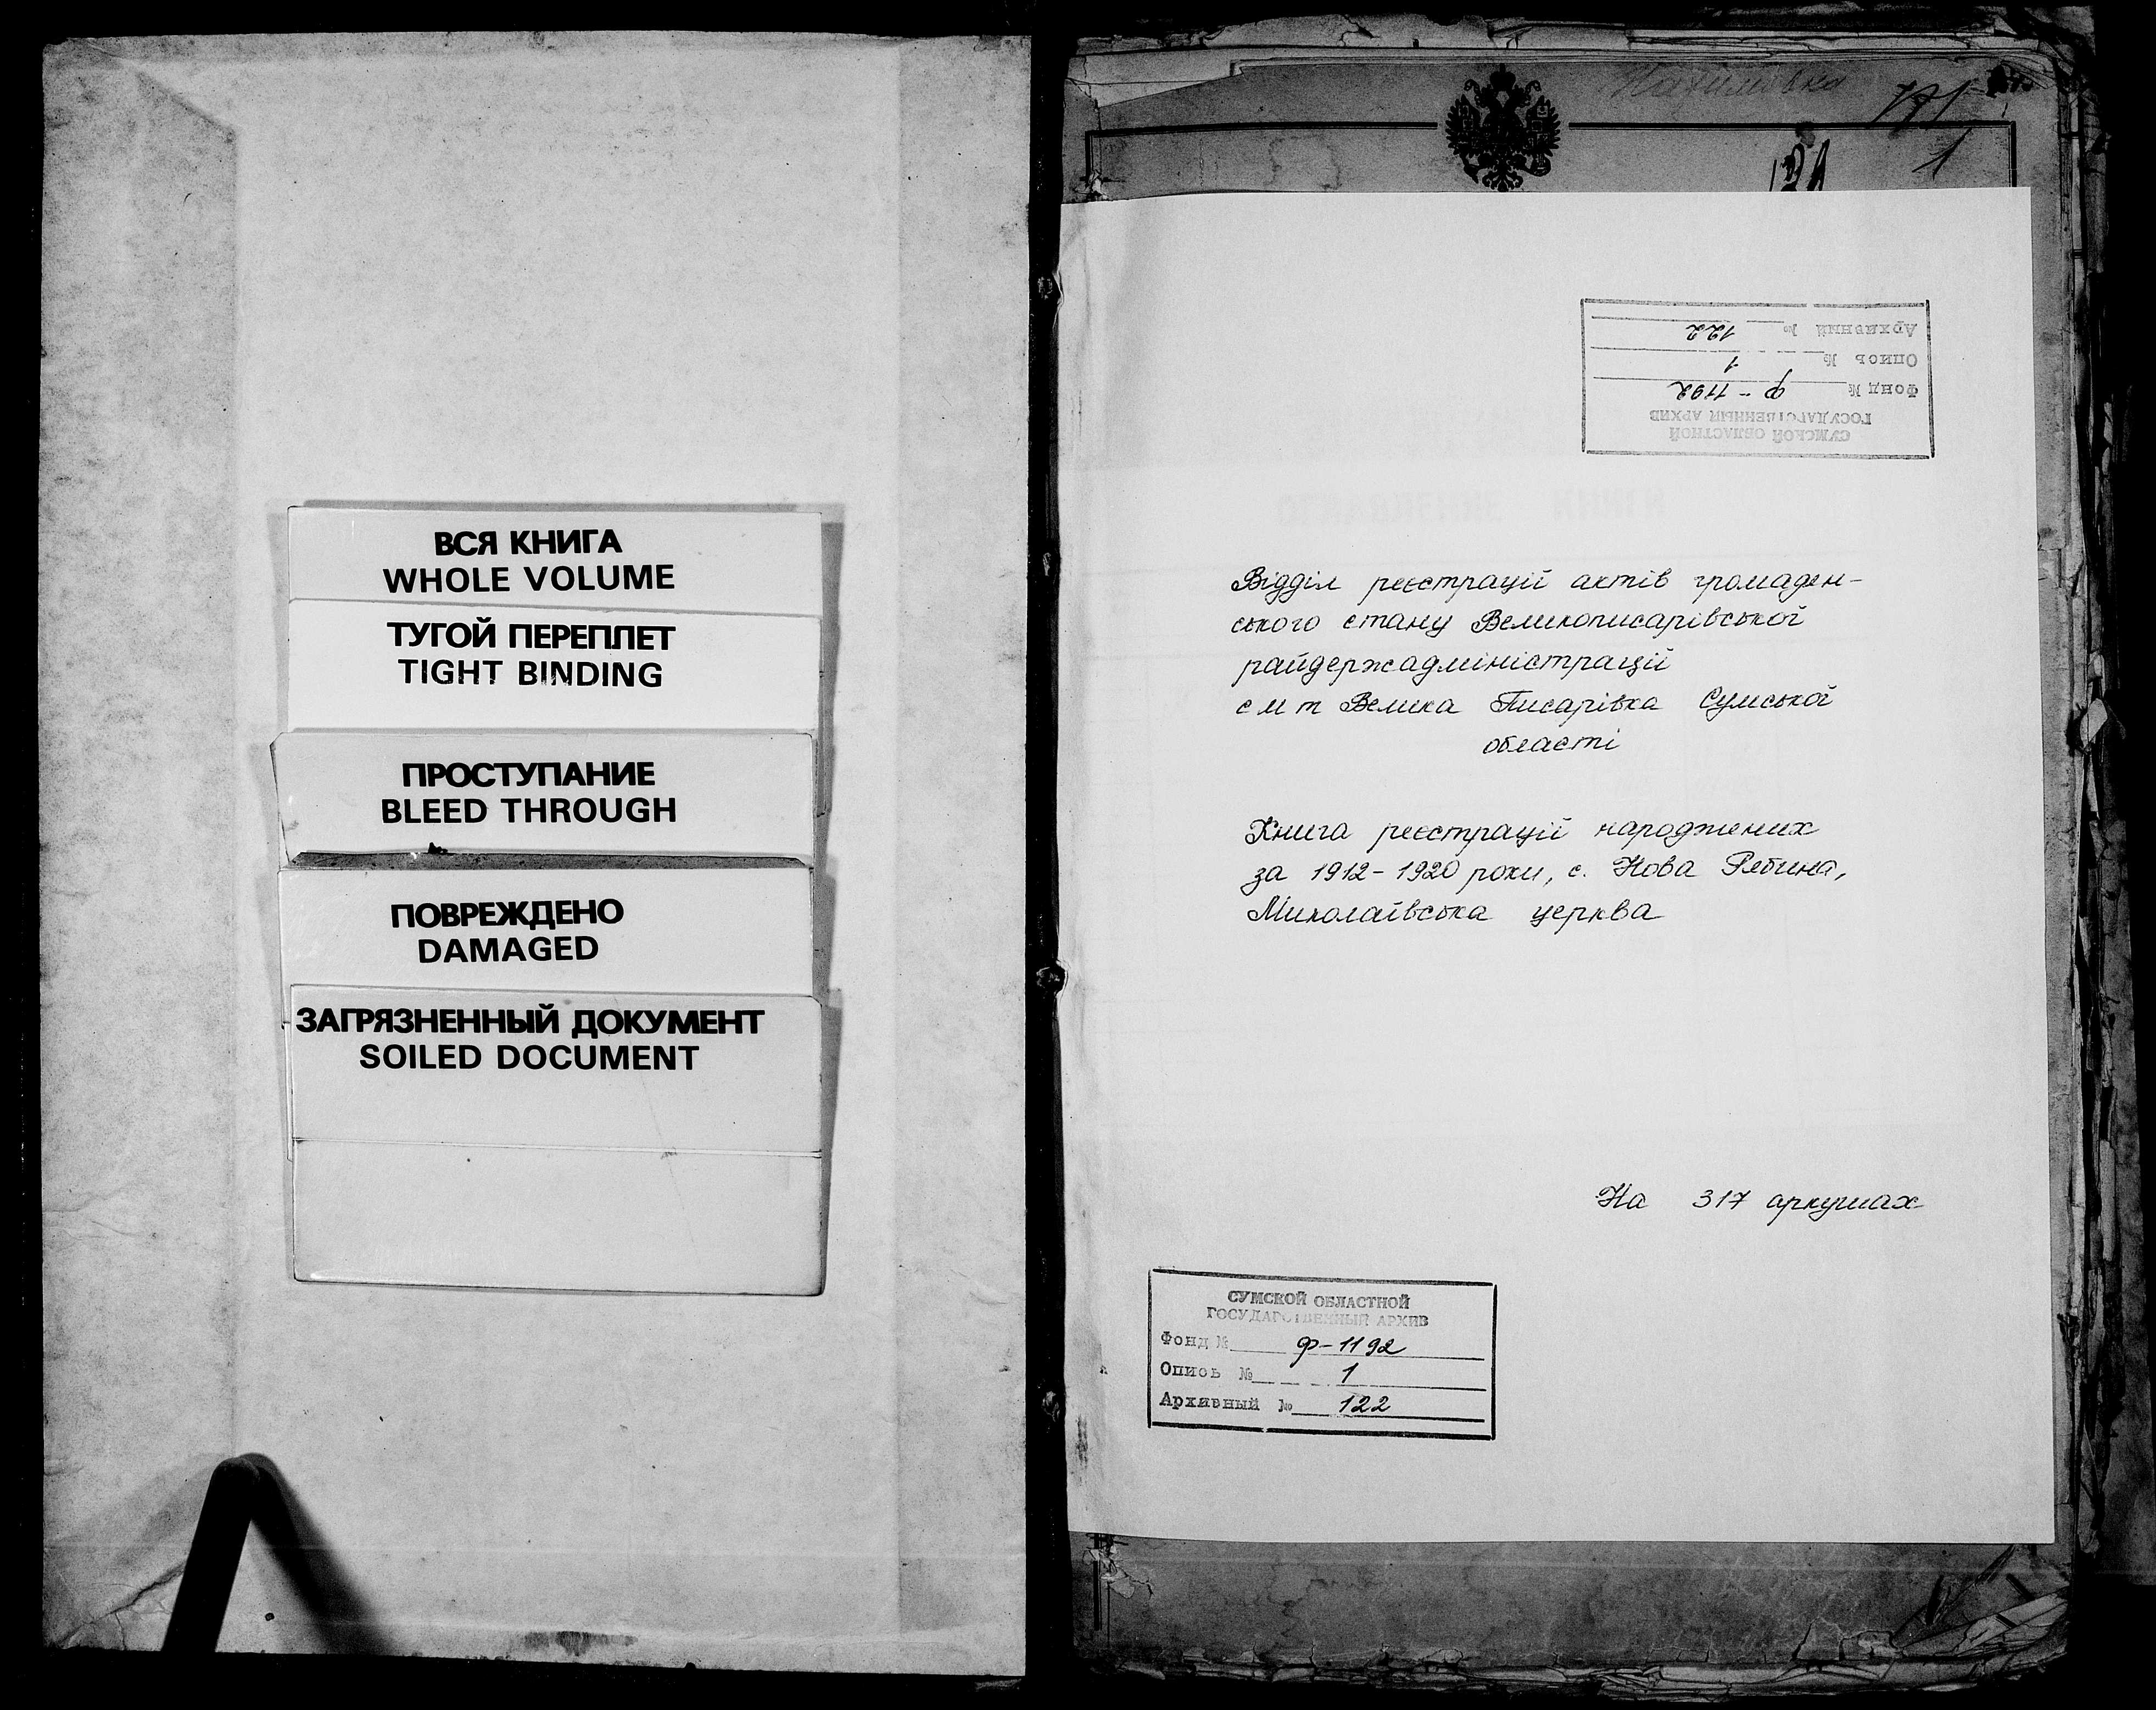 ВСЯ КНИГА
WHOLE VOLUME
ТУГОЙ ПЕРЕПЛЕТ
TIGHT BINDING
ПРОСТУПАНИЕ
BLEED THROUGH
ПОВРЕЖДЕНО
DAMAGED
ЗАГРЯЗНЕННЫЙ ДОКУМЕНТ
SOILED DOCUMENT
1
СУМСКОЙ ОБЛАСТНОЙ
ГОСУДАРСТВЕННЫЙ АРХИВ
Фонд № ф-1192
Опись № 1
Архивный № 122
Відділ реєстрації актів громаден-
ського стану Великописарівської
райдержадміністрації
смт Велика Писарівка Сумської
області
Книга реєстрації народжених
за 1912-1920 роки, с. Нова Рябина,
Миколаївська церква
На 317 аркушах
СУМСКОЙ ОБЛАСТНОЙ
ГОСУДАРСТВЕННЫЙ АРХИВ
Фонд № ф-1192
Опись № 1
Архивный № 122